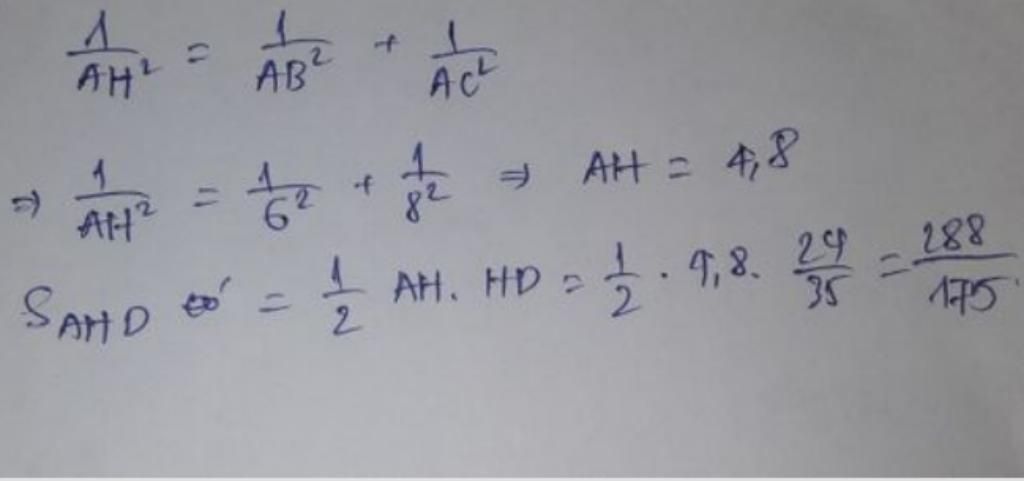 1/AH² = 1/AB² + 1/AC²
⇒ 1/AH² = 1/6² + 1/8² ⇒ AH = 4,8
S_AHD = 1/2 AH. HD = 1/2 . 4,8. 24/35 = 288/175